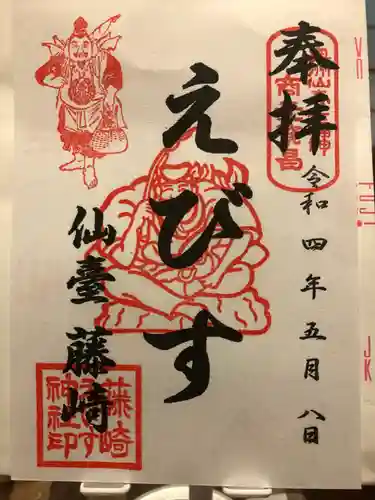 奉拝
商売繁昌
令和四年五月八日
えびす
仙臺 藤崎
藤崎
えびす
神社印